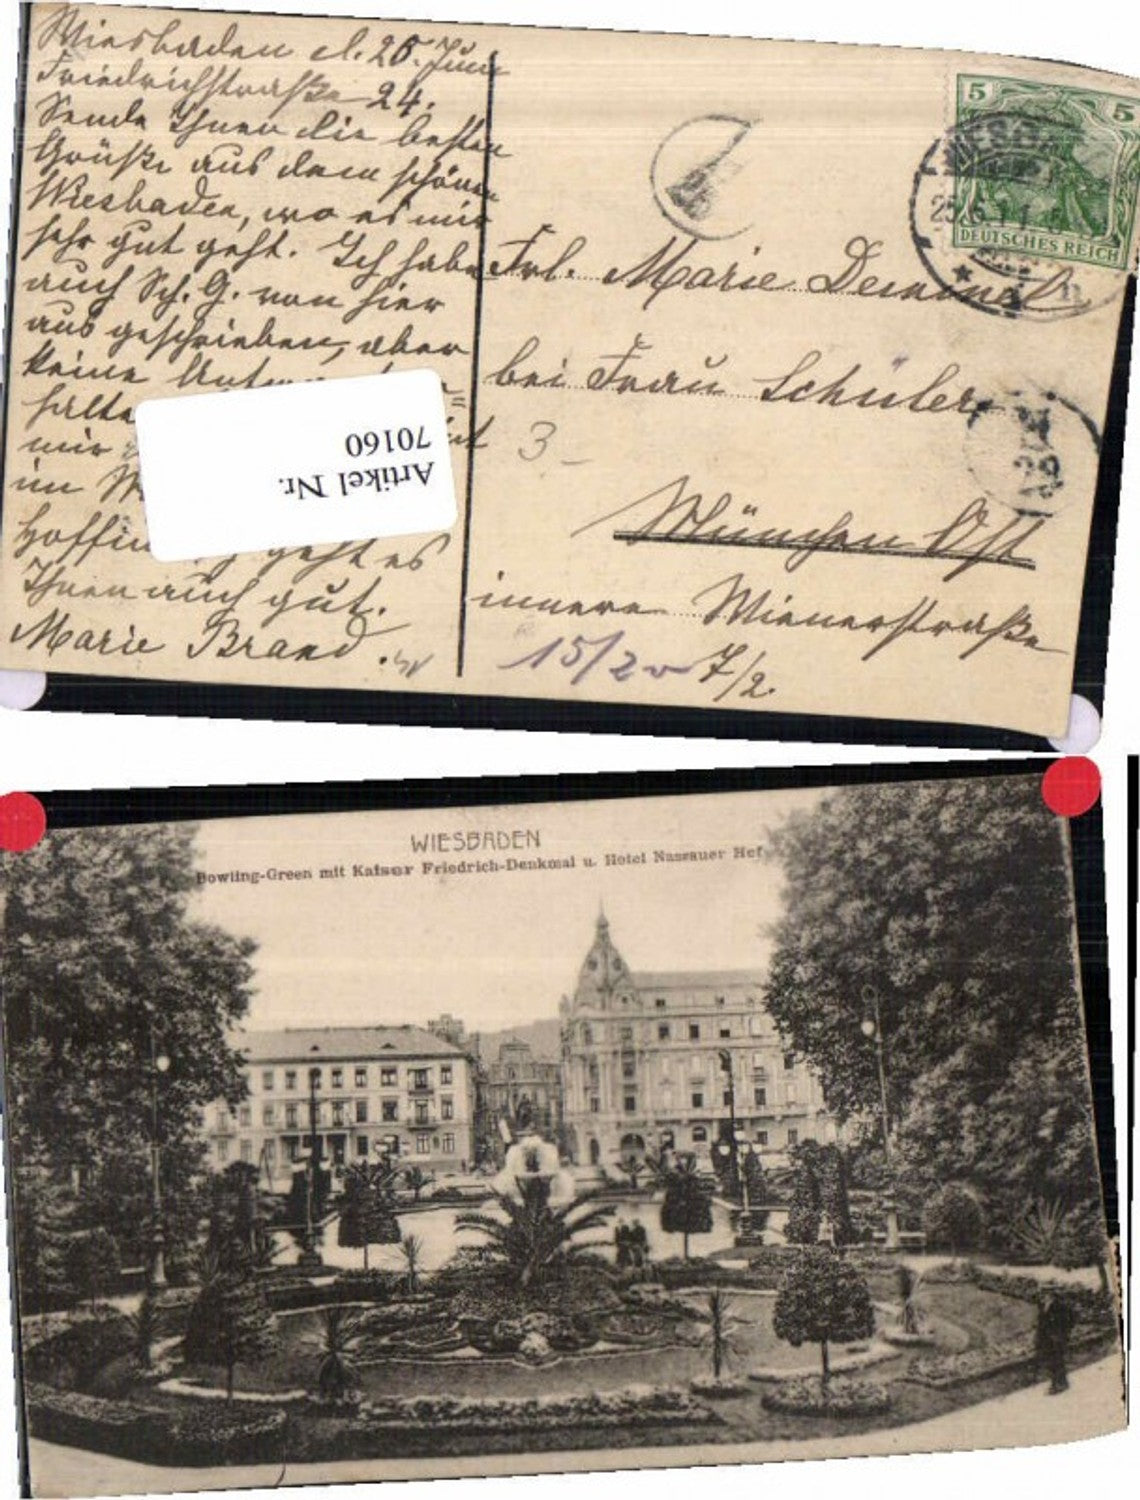 Wiesbaden d. 25. Juni
Friedrichstraße 24.
Sende Ihnen die besten
Grüße aus dem schönen
Wiesbaden, wo es mir
sehr gut geht. Ich habe
auch Sch. G. von hier
aus geschrieben, aber
keine
mir
im
geht es
Ihnen auch gut.
Marie Brand.
5 5
DEUTSCHES REICH
25.6.11
Frl. Marie
bei Frau Schüler
3
München Ost
innere Wienerstraße
15/2 7/2.
Artikel Nr.
70160
WIESBADEN
Bowling-Green mit Kaiser Friedrich-Denkmal u. Hotel Nassauer Hof